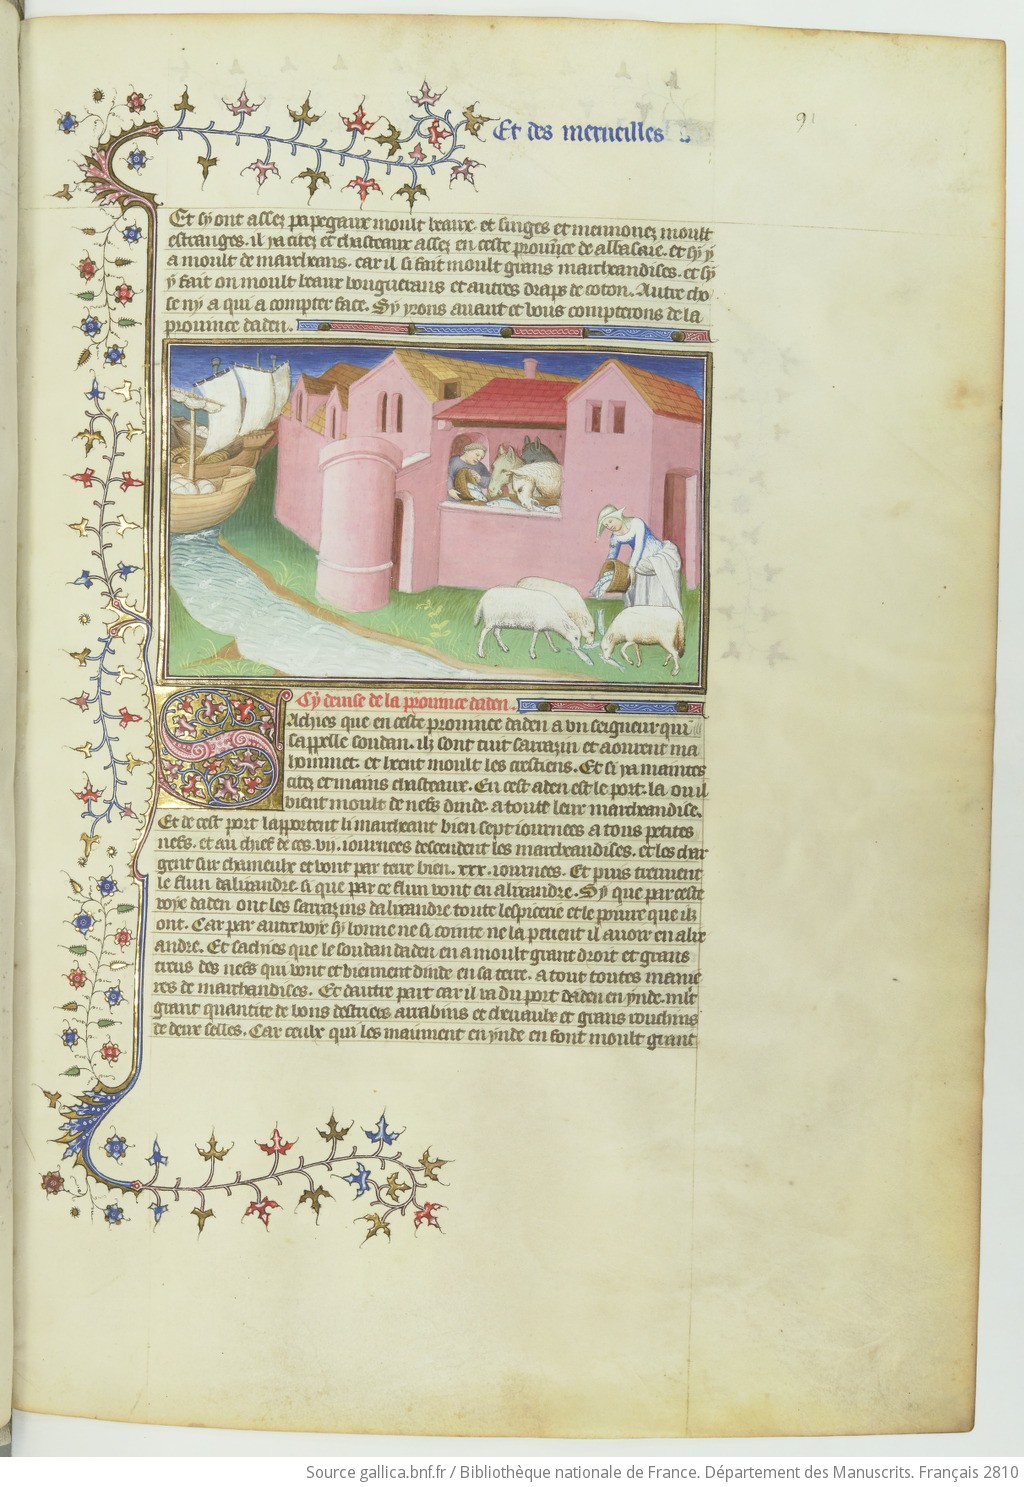 91
Et des merueilles
Et sy ont assez papegaux moult beaux. et singes et mennonez moult
estranges. il ya citez et chasteaux assez en ceste prouince de abbasie. et sy y
a moult de marchans. car il si fait moult grans marchandises. et sy
y fait on moult beaux bouguerans et autres draps de coton. Autre cho
se ny a qui a compter face. Sy yrons auant et vous compterons de la
prouince daden.
Cy deuise de la prouince daden.
Sachies que en ceste prouince daden a vn seigneur qui
sappelle soudan. ilz sont tuit sarrazin et aourent ma
hommet. et heent moult les crestiens. Et si ya maintes
citez et mains chasteaux. En cest aden est le port. la ou il
vient moult de nefs dinde. a toute leur marchandise.
Et de cest port lapportent li marcheant bien sept iournees a tous petites
nefs. et au chief de ces .vij. iournees descendent les marchandises. et les char
gent sur chameulx et vont par terre bien .xxx. iournees. Et puis treuuent
le flun dalixandre. si que par ce flun vont en alixandre. Sy que par ceste
voye daden ont les sarrazins dalixandre toute lespicerie et le poiure que ilz
ont. Car par autre voye sy bonne ne si cointe ne la peuent il auoir en alix
andre. Et sachies que le soudan daden en a moult grant droit et grans
treus des nefs qui vont et viennent dinde en sa terre. a tout toutes manie
res de marchandises. Et dautre part car il va du port daden en ynde. mlt
grant quantite de bons destriers arrabins et cheuaulx et grans rouchins
de deux selles. Car ceulx qui les mainnent en ynde en font moult grant
Source gallica.bnf.fr / Bibliothèque nationale de France. Département des Manuscrits. Français 2810